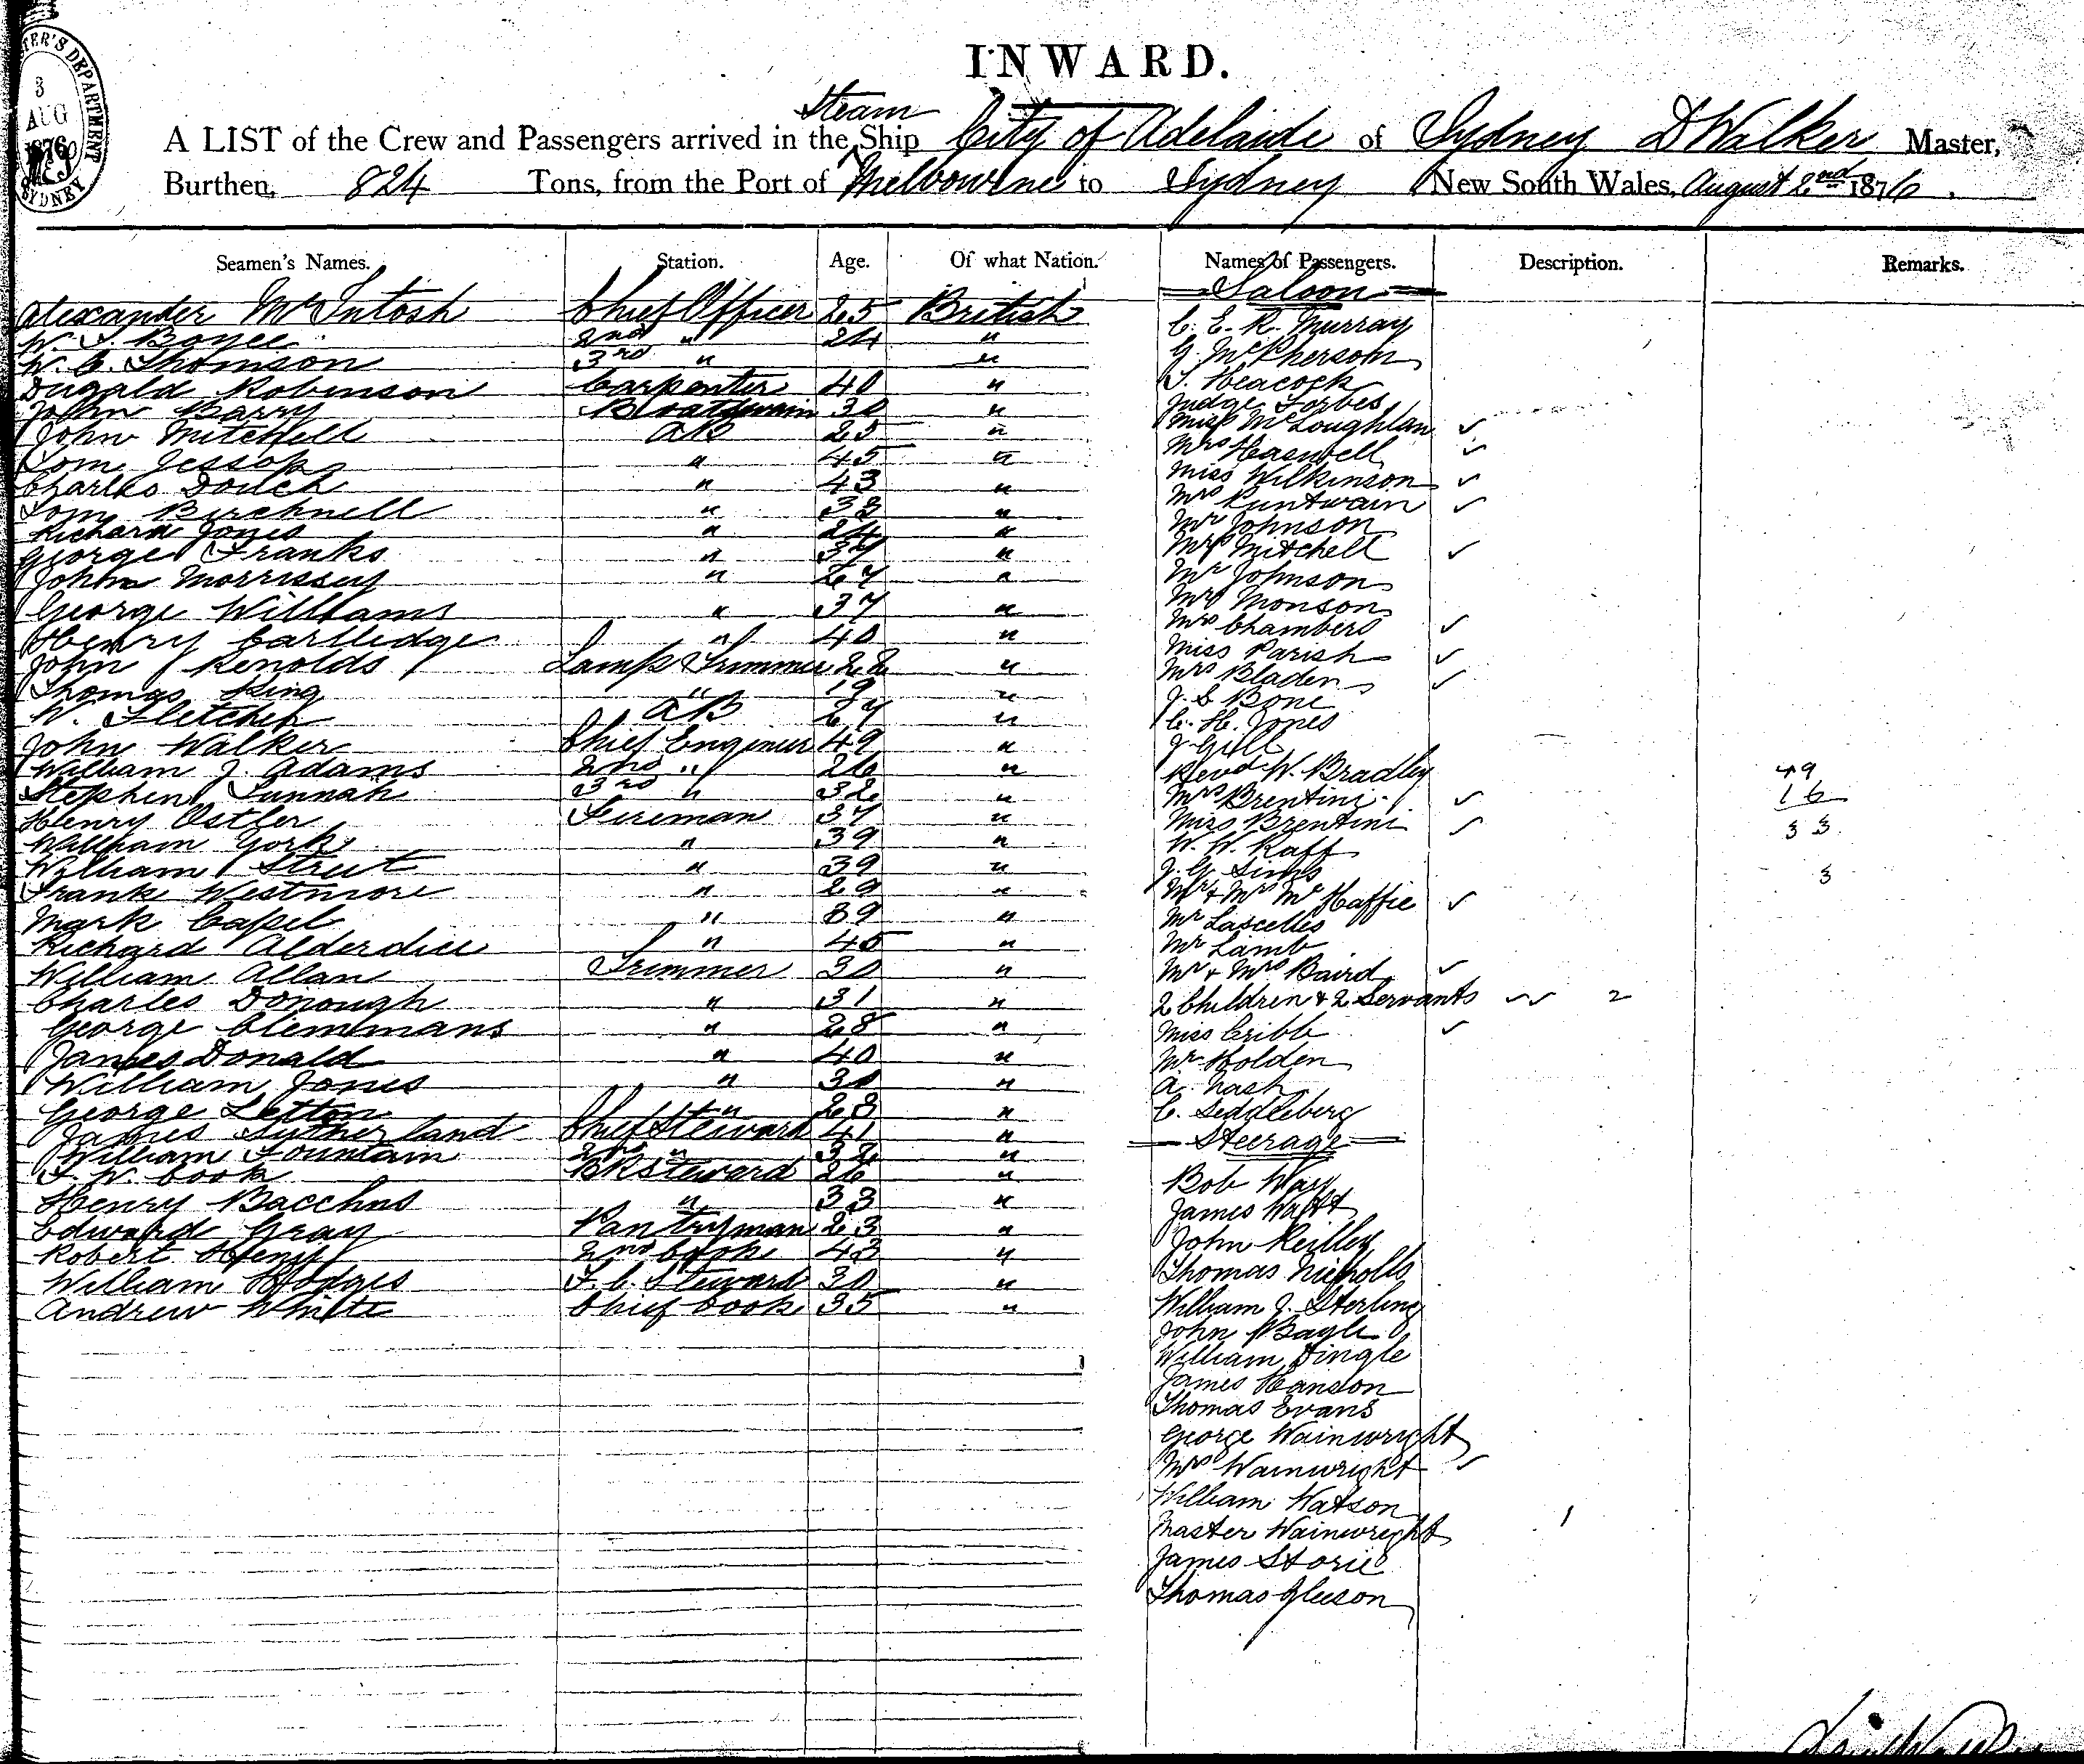 INWARD.
MASTER'S DEPARTMENT
3
AUG
1876
SYDNEY
Steam
A LIST of the Crew and Passengers arrived in the Ship City of Adelaide of Sydney D Walker Master,
Burthen, 824 Tons, from the Port of Melbourne to Sydney New South Wales, August 2nd 1876.
Seamen's Names. Station. Age. Of what Nation. Names of Passengers. Description. Remarks.
Alexander McIntosh Chief Officer 25 British
W. J. Boyce 2nd " 24 "
W. C. Thomson 3rd " "
Dugald Robinson Carpenter 40 "
John Barry Boatswain 30 "
John Mitchell AB 25 "
Tom Jessop " 45 "
Charles " 43 "
Tom Birchnell " 38 "
Richard Jones " 24 "
George Franks " 37 "
John Morrissey " 27 "
George Williams " 37 "
Henry Cartledge " 40 "
John Renolds Lamp Trimmer 22 "
Thomas King " 19 "
W. Fletcher AB 27 "
John Walker Chief Engineer 49 "
William J. Adams 2nd " 26 "
Stephen Sunnah 3rd " 32 "
Henry Ostler Fireman 37 "
William York " 39 "
William Strut " 39 "
Frank Westmore " 29 "
Mark Capel " 39 "
Richard Alderdice " 45 "
William Allan Trimmer 30 "
Charles Donough " 31 "
George Clemmans " 28 "
James Donald " 40 "
William Jones " 30 "
George Letton " 23 "
James Sutherland Chief Steward 41 "
William Fountain 2nd " 32 "
F. W. Cook BkSteward 26 "
Henry Bacchus " 33 "
Edward Gray Pantryman 23 "
Robert Henry 2nd Cook 43 "
William Hodges F. C. Steward 30 "
Andrew White Chief Cook 35 "
Saloon
C. E. R. Murray
G. McPherson
T. Heacock
Judge Forbes
Miss McLoughlan ✓
Mrs Haswell ✓
Miss Wilkinson ✓
Mrs Runtwain ✓
Mr Johnson
Mrs Mitchell ✓
Mr Johnson
Mr Monson
Mrs Chambers ✓
Miss Parish ✓
Mrs Bladen ✓
J. S Bone
C. H. Jones
J Gill
Revd W. Bradley
Mrs Brentini ✓
Miss Brentini ✓
W. W. Raff
J. G Sims
Mr & Mrs McHaffie ✓
Mr Lascelles
Mr Lamb
Mr & Mrs Baird ✓
2 Children & 2 Servants ✓✓ 2
Miss Cribb ✓
Mr Holden
A. Nash
C. Seddleberg
Steerage
Bob Way
James Watt
John Reilley
Thomas Nicholls
William J. Sterling
John Bayle
William Dingle
James Hanson
Thomas Evans
George Wainwright
Mrs Wainwright ✓
William Watson
Master Wainwright 1
James Storie
Thomas Gleeson
49
16
33
3